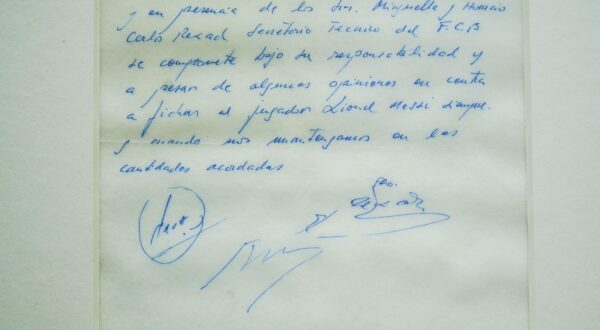 y en presencia de los Srs. Minguella y Horacio
Carles Rexach Secretario Tecnico del F.C.B
se compromete bajo su responsabilidad y
a pesar de algunas opiniones en contra
a fichar al jugador Lionel Messi siempre
y cuando nos mantengamos en las
cantidades acordadas